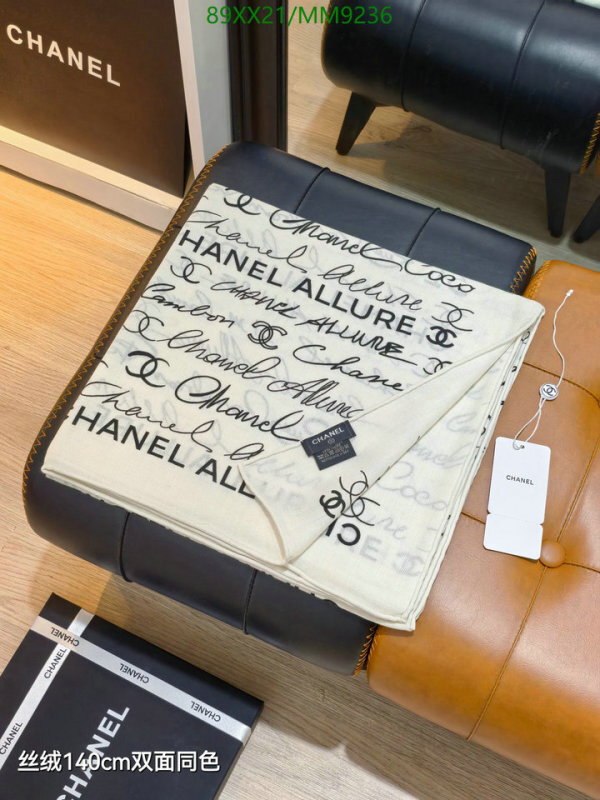 89XX21/MM9236
CHANEL
Chanel Coco
Chanel Allure
HANEL ALLURE
CHANEL ALLURE
Cambon
Chane
Chanel Allure
Chanel
Chanel Allure
HANEL ALL
CHANEL
CHANEL
CHANEL
CHANEL
CHANEL
CHANEL
CHANEL
CHANEL
丝绒140cm双面同色